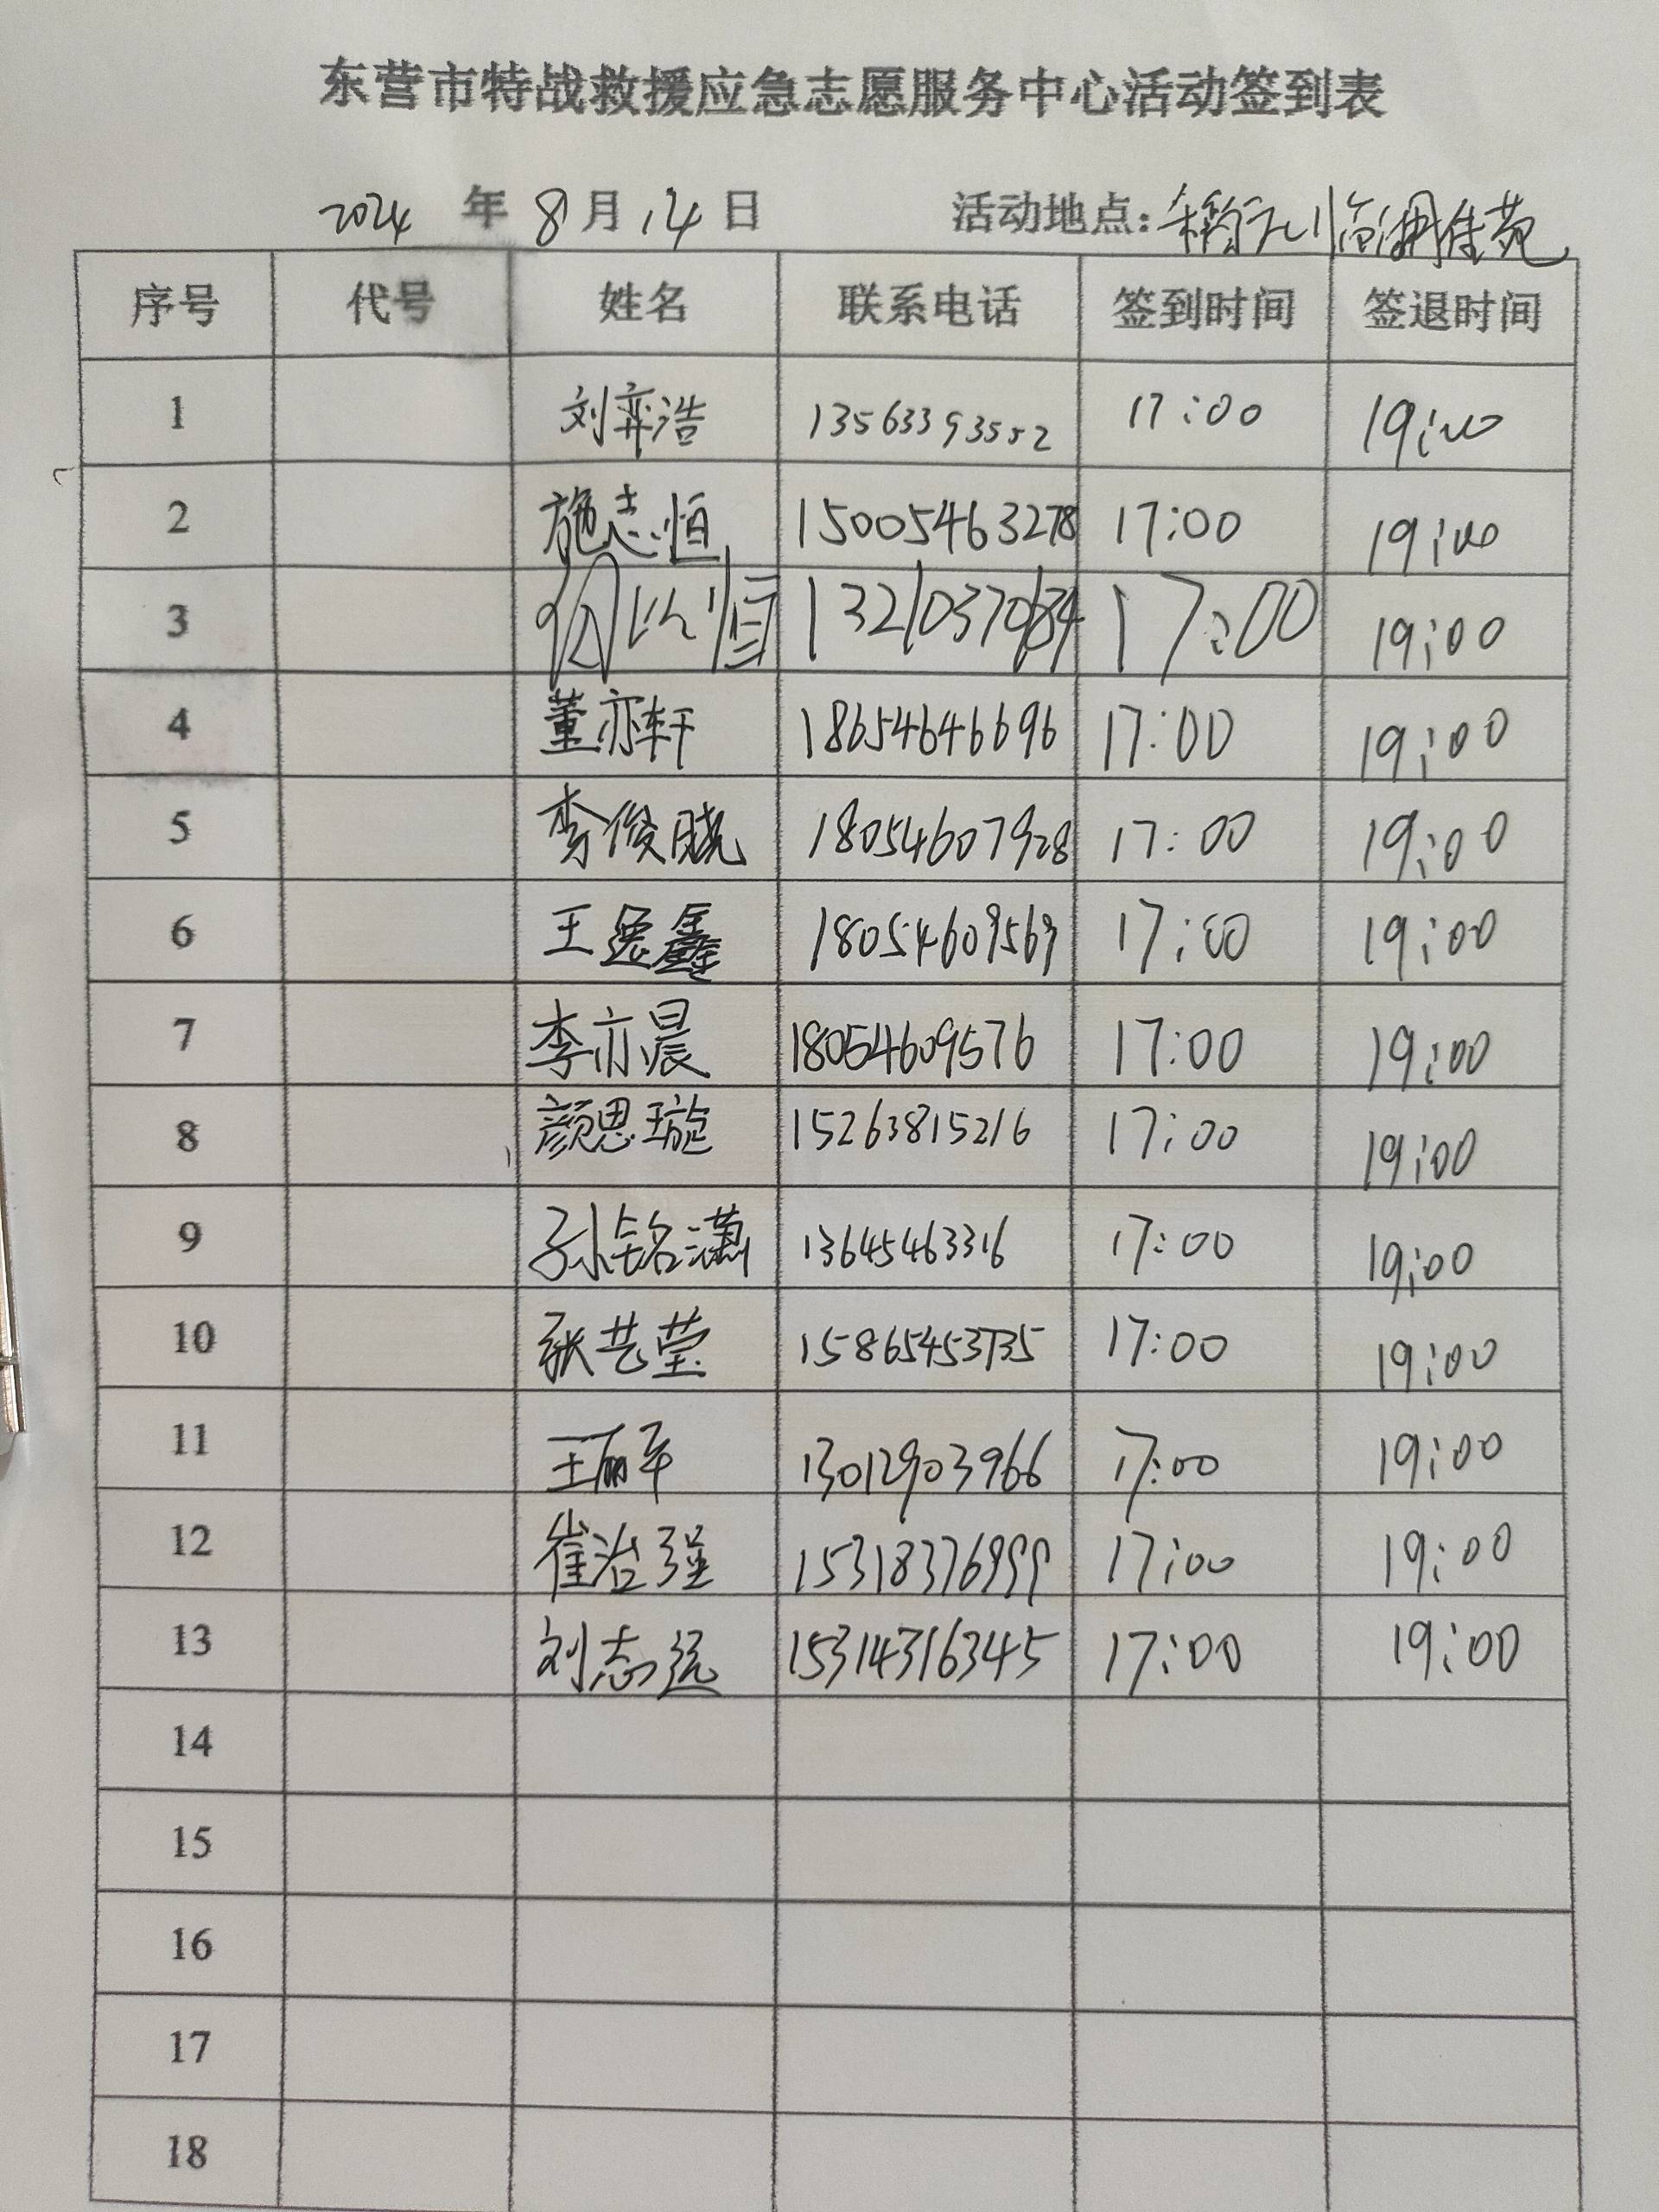 东营市特战救援应急志愿服务中心活动签到表
2024 年 8 月 14 日 活动地点:
序号 代号 姓名 联系电话 签到时间 签退时间
1 刘弈浩 13563393552 17:00 19:00
2 施志恒 15005463278 17:00 19:00
3 17:00 19:00
4 董亦轩 18654646696 17:00 19:00
5 李俊晓 18054607928 17:00 19:00
6 王逸鑫 18054609569 17:00 19:00
7 李亦晨 18054609576 17:00 19:00
8 颜思璇 15263815216 17:00 19:00
9 孙铭潇 13645463316 17:00 19:00
10 张艺莹 15865453735 17:00 19:00
11 王丽平 13012903966 17:00 19:00
12 崔治强 15318376999 17:00 19:00
13 刘志远 15314316345 17:00 19:00
14
15
16
17
18